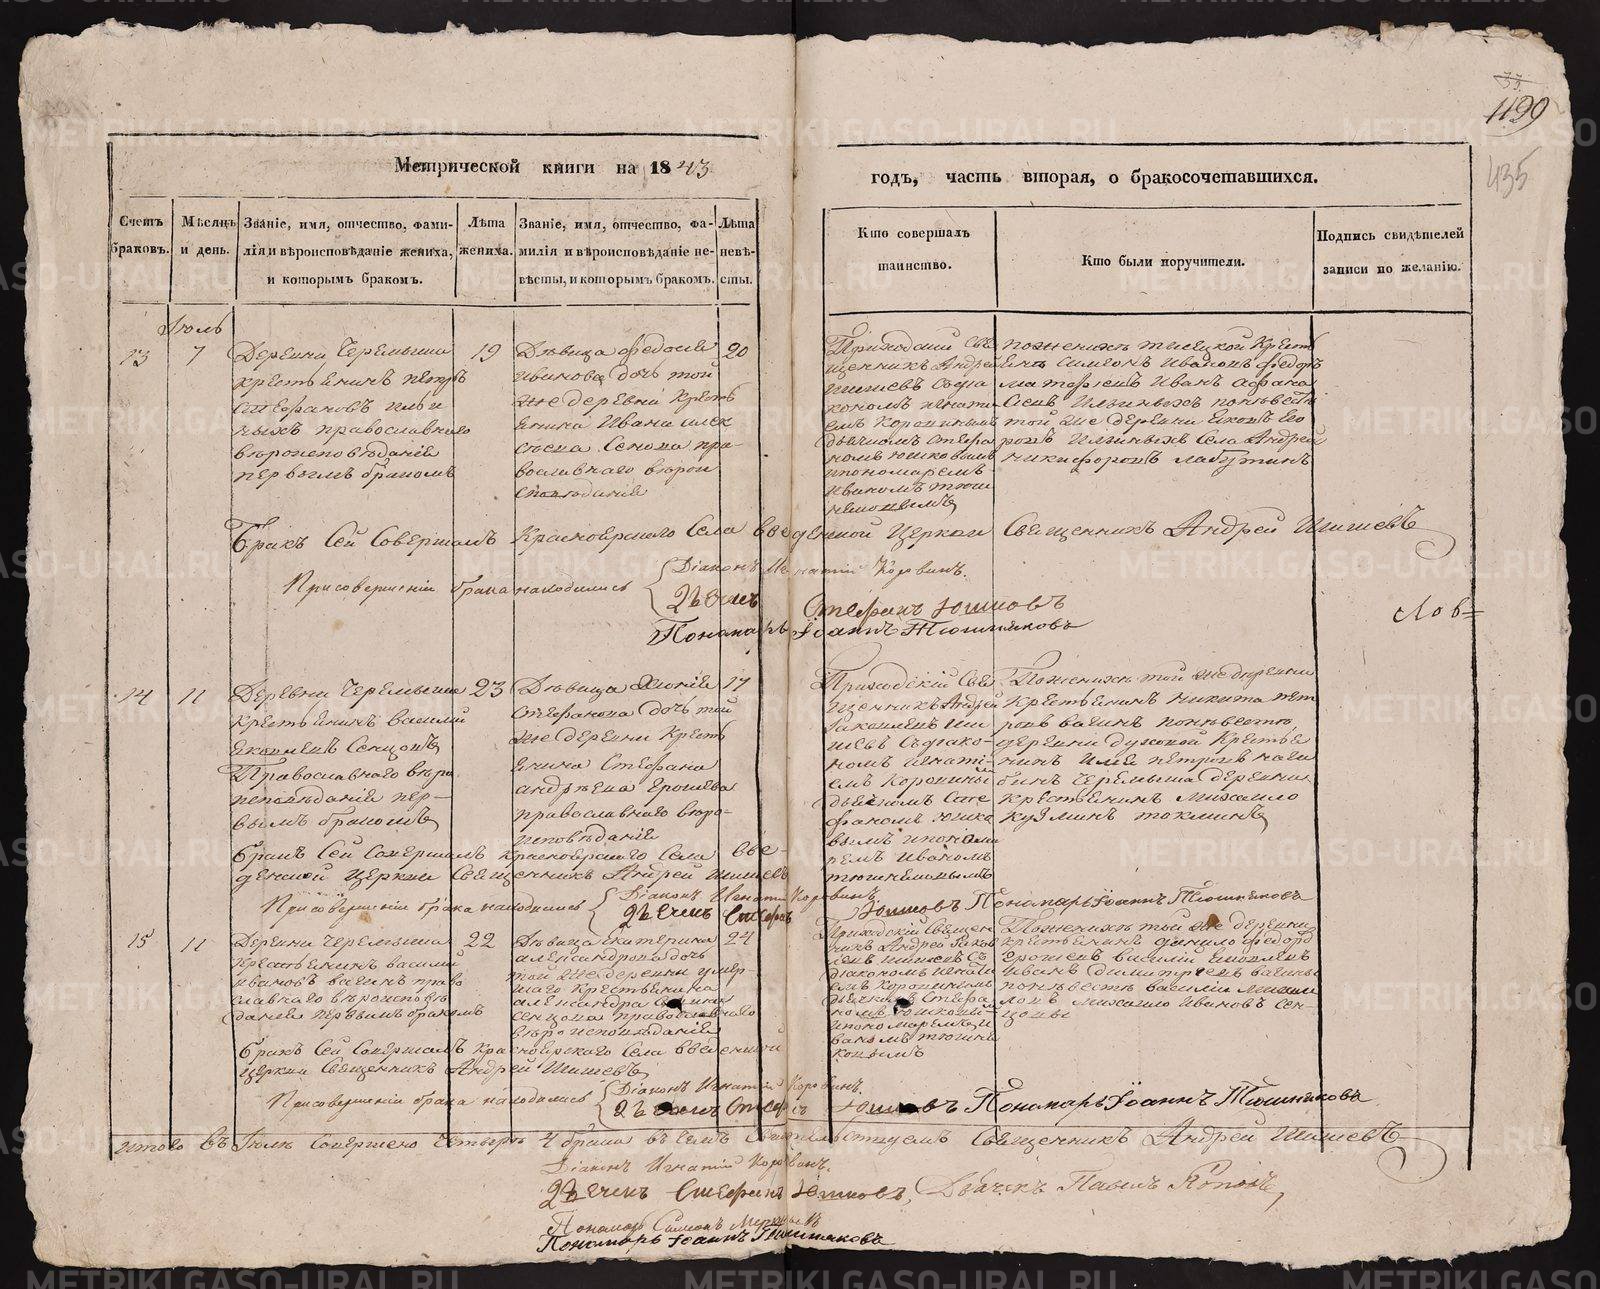 1199
435
Метрической книги на 1843
годъ, часть вторая, о бракосочетавшихся.
Счетъ браковъ.
Мѣсяцъ и день.
Званіе, имя, отчество, фами-
лія и вѣроисповѣданіе жениха,
и которымъ бракомъ.
Лѣта жениха.
Званіе, имя, отчество, фа-
милія и вѣроисповѣданіе не-
вѣсты, и которымъ бракомъ.
Лѣта невѣ-
сты.
Кто совершалъ
таинство.
Кто были поручители.
Подпись свидѣтелей
записи по желанію.
Іюль
13
7
Деревни Черемыша
крестьянинъ Петръ
Стефановъ Ильи
ныхъ православнаго
вѣроисповѣданія
первымъ бракомъ
19
Дѣвица Федосія
Иванова дочь той
же деревни кресть
янина Ивана Алек
сѣева Сенова пра-
вославнаго вѣрои
сповѣданія
20
Приходский Свя
щенникъ Андрей
Шишевъ съ діа
кономъ Игнати
емъ Коровинымъ
дьячкомъ Стефа
номъ Юшковымъ
ипономаремъ
Иваномъ Тюш
няковымъ
крестъ
Иванъ Афана
той же деревни Яковъ Его
ровъ Ильиныхъ Села Андрей
Никифоровъ Лабутинъ
Бракъ Сей Совершалъ Красноярскаго Села Введенской Церкви Священникъ Андрей Шишевъ
Присовершеніи брака находились
Діаконъ Игнатій Коровинъ.
Дьячекъ Стефанъ Юшковъ
Пономарь Іоаннъ Тюшняковъ
Лов=
14
11
Деревни Черемыша
крестьянинъ Василій
Якимовъ Сенцовъ
Православнаго вѣро
исповѣданія пер-
вымъ бракомъ
23
Дѣвица Хионія
Стефанова дочь той
же деревни кресть
янина Стефана
Андрѣева Ерошева
православнаго вѣро-
исповѣданія
17
Приходскій Свя
щенникъ Андрей
Яковлевъ Ши
шевъ съ діако-
номъ Игнати-
емъ Коровины
дьячкомъ Сте
фаномъ Юшко
вымъ ипонома
ремъ Иваномъ
Тюшняковымъ
Пожениху той же деревни
Крестьянинъ Никита Пет
ровъ Вагинъ поневѣстѣ
деревни Духовой Крестья
нинъ Илья Петровъ
Черемыша деревни
крестьянинъ Михайло
Кузминъ Токминъ
Бракъ Сей Совершалъ Красноярскаго Села Вве-
денской Церкви Священникъ Андрей Шишевъ
Присовершеніи брака находились
Діаконъ Игнатій Коровинъ.
Дьячекъ Стефанъ Юшковъ Пономарь Іоаннъ Тюшняковъ
15
11
Деревни Черемыша
крестьянинъ Василій
Ивановъ Вагинъ право
славнаго вѣроисповѣ
данія первымъ бракомъ
22
Дѣвица Екатерина
Александрова дочь
той же деревни умер-
шаго крестьянина
Александра
Сенцова православнаго
вѣроисповѣданія
24
Приходскій Священ
никъ Андрей Яков
левъ Шишевъ съ
діакономъ Игнати
емъ Коровинымъ
дьячкомъ Стефа
номъ Юшковы-
ипономаремъ И
ваномъ Тюшня
ковымъ
Пожениху той же деревни
крестьянинъ Данило Федор
Ерошевъ Василій Яковлевъ
Иванъ Димитріевъ Вагины
поневѣстѣ Василій Михаи
ловъ Михайло Ивановъ Сен-
цовы
Бракъ Сей Совершалъ Красноярскаго Села Введенской
Церкви Священникъ Андрей Шишевъ
Присовершеніи брака находились
Діаконъ Игнатій Коровинъ.
Дьячекъ Стефанъ Юшковъ Пономарь Іоаннъ Тюшняковъ
Итого въ Іюлѣ Совершено Четыре 4 брака въ чемъ Свидѣтельствуемъ Священникъ Андрей Шишевъ
Діаконъ Игнатій Коровинъ.
Дьячекъ Стефанъ Юшковъ, Дьячекъ Павелъ Поповъ
Пономарь Симеонъ
Пономарь Іоаннъ Тюшняковъ
METRIKI.GASO-URAL.RU